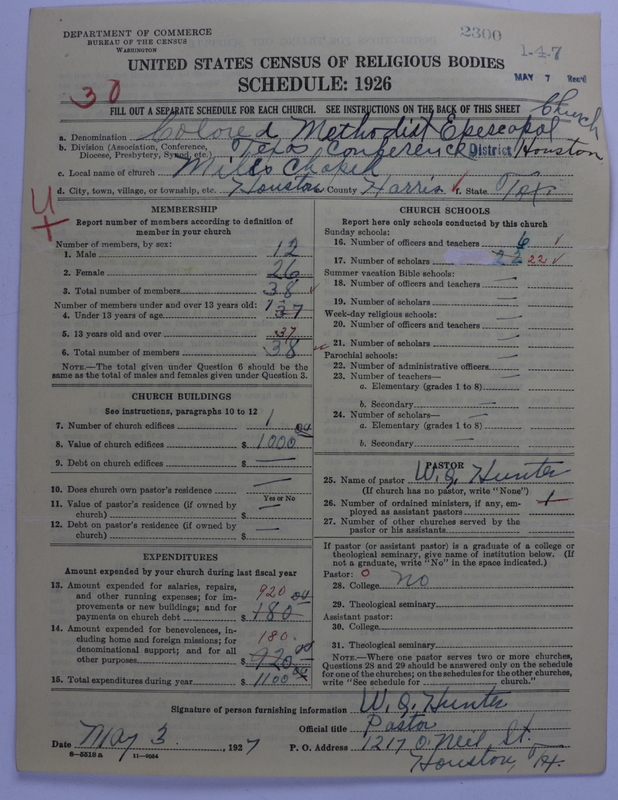 DEPARTMENT OF COMMERCE
BUREAU OF THE CENSUS
WASHINGTON
2300
1-4-7
MAY 7 Rec'd
UNITED STATES CENSUS OF RELIGIOUS BODIES
SCHEDULE: 1926
30
FILL OUT A SEPARATE SCHEDULE FOR EACH CHURCH. SEE INSTRUCTIONS ON THE BACK OF THIS SHEET
a. Denomination Colored Methodist Episcopal Church
b. Division (Association, Conference, Diocese, Presbytery, Synod, etc.) Texas Conference District Houston
c. Local name of church Mills Chapel
d. City, town, village, or township, etc. Houston County Harris f. State Tex
MEMBERSHIP
Report number of members according to definition of member in your church
Number of members, by sex:
1. Male 12
2. Female 26
3. Total number of members 38
Number of members under and over 13 years old:
4. Under 13 years of age 1 37
5. 13 years old and over 37
6. Total number of members 38
NOTE.—The total given under Question 6 should be the same as the total of males and females given under Question 3.
CHURCH BUILDINGS
See instructions, paragraphs 10 to 12
7. Number of church edifices 1
8. Value of church edifices $ 1000 00
9. Debt on church edifices $ —
10. Does church own pastor's residence —
Yes or No
11. Value of pastor's residence (if owned by church) $ —
12. Debt on pastor's residence (if owned by church) $ —
EXPENDITURES
Amount expended by your church during last fiscal year
13. Amount expended for salaries, repairs, and other running expenses; for improvements or new buildings; and for payments on church debt $ 920 180 00
14. Amount expended for benevolences, including home and foreign missions; for denominational support; and for all other purposes $ 180. 920 00
15. Total expenditures during year $ 1100 00
CHURCH SCHOOLS
Report here only schools conducted by this church
Sunday schools:
16. Number of officers and teachers 6
17. Number of scholars 22 22
Summer vacation Bible schools:
18. Number of officers and teachers —
19. Number of scholars —
Week-day religious schools:
20. Number of officers and teachers —
21. Number of scholars —
Parochial schools:
22. Number of administrative officers —
23. Number of teachers—
a. Elementary (grades 1 to 8) —
b. Secondary —
24. Number of scholars—
a. Elementary (grades 1 to 8) —
b. Secondary —
PASTOR
25. Name of pastor W. G. Hunter
(If church has no pastor, write "None")
26. Number of ordained ministers, if any, employed as assistant pastors 1
27. Number of other churches served by the pastor or his assistants
If pastor (or assistant pastor) is a graduate of a college or theological seminary, give name of institution below. (If not a graduate, write "No" in the space indicated.)
Pastor: 0
28. College no
29. Theological seminary
Assistant pastor:
30. College
31. Theological seminary
NOTE.—Where one pastor serves two or more churches, Questions 28 and 29 should be answered only on the schedule for one of the churches; on the schedules for the other churches, write "See schedule for church."
Signature of person furnishing information W. G. Hunter
Official title Pastor
Date May 3, 1927 P. O. Address 1217 O'Neil St.
Houston, Tex.
8—5518 a 11—9664